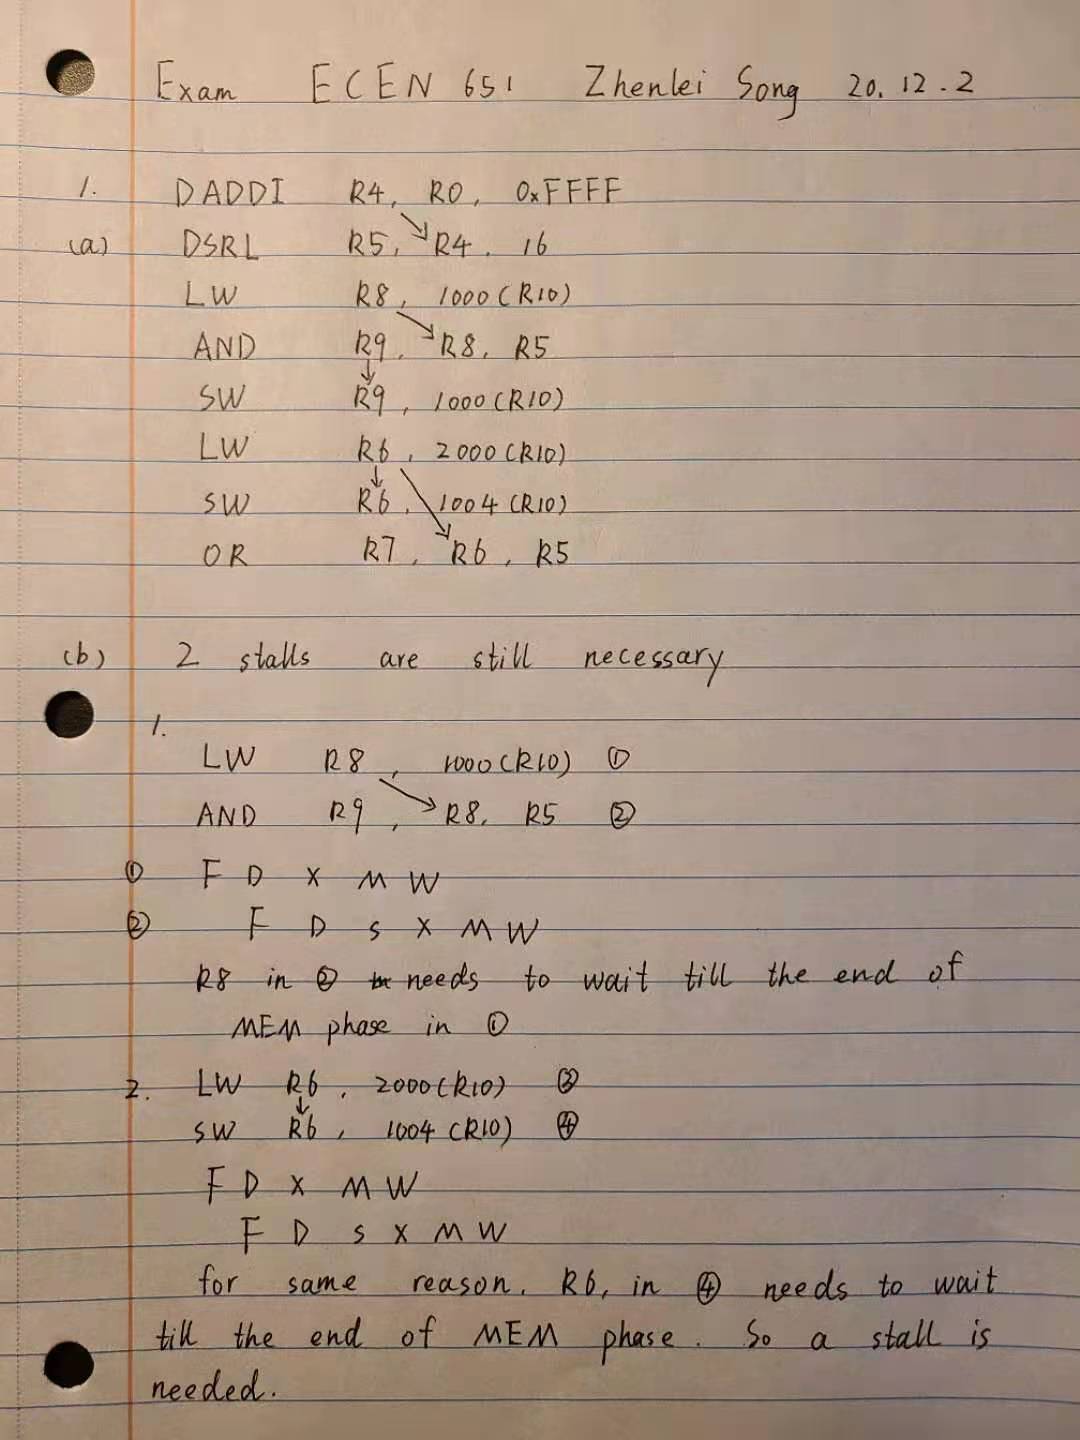 Exam ECEN 651 Zhenlei Song 20.12.2
1. DADDI R4, R0, 0xFFFF
(a) DSRL R5, R4, 16
LW R8, 1000(R10)
AND R9, R8, R5
SW R9, 1000(R10)
LW R6, 2000(R10)
SW R6, 1004(R10)
OR R7, R6, R5
(b) 2 stalls are still necessary
1.
LW R8, 1000(R10) ①
AND R9, R8, R5 ②
① F D X M W
② F D S X M W
R8 in ② needs to wait till the end of
MEM phase in ①
2. LW R6, 2000(R10) ③
SW R6, 1004(R10) ④
F D X M W
F D S X M W
for same reason. R6, in ④ needs to wait
till the end of MEM phase. So a stall is
needed.